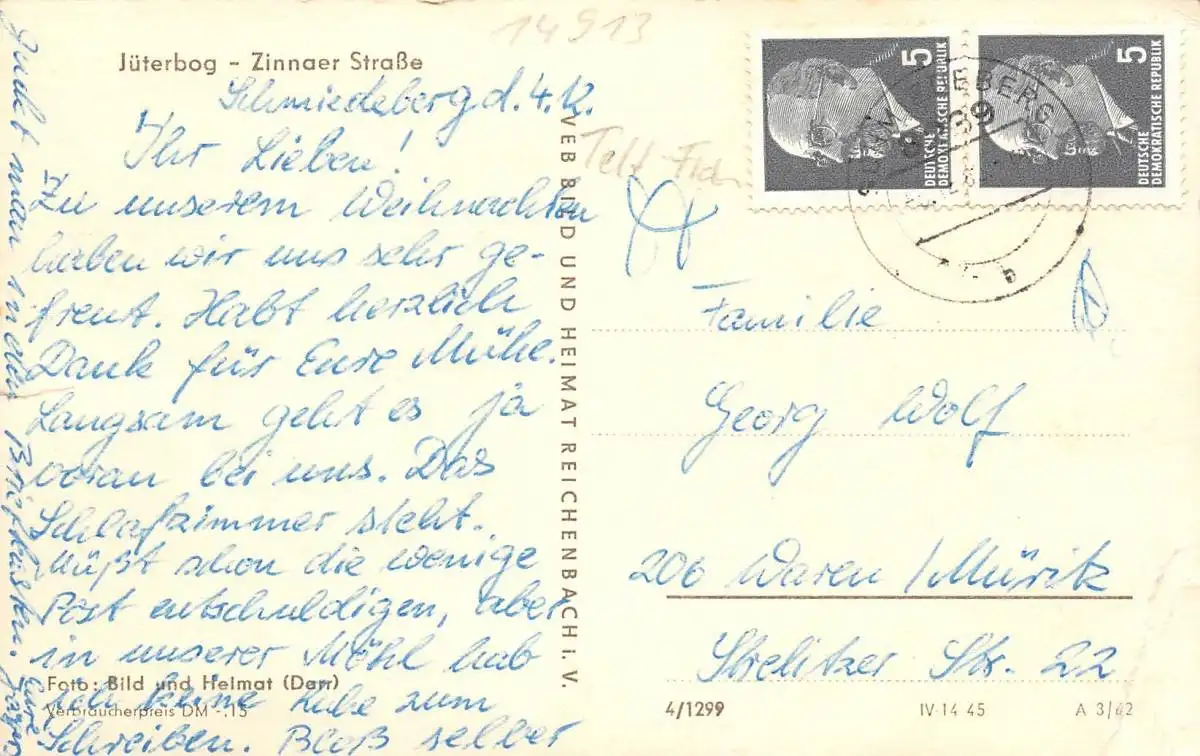 14913
Jüterbog - Zinnaer Straße
Schmiedeberg d. 4.12.
Ihr Lieben!
Zu unserem Weihnachten
haben wir uns sehr ge-
freut. Habt herzlich
Dank für Eure Mühe.
Langsam geht es ja
voran bei uns. Das
Schlafzimmer steht.
Müßt schon die wenige
Post entschuldigen, aber
in unserer Möhl hab
ich keine Ruhe zum
Schreiben. Bloß selber
guckt man in den Briefkasten.
Eure
Foto: Bild und Heimat (Darr)
Verbraucherpreis DM -,15
VEB BILD UND HEIMAT REICHENBACH i. V.
5
DEUTSCHE
DEMOKRATISCHE REPUBLIK
5
DEUTSCHE
DEMOKRATISCHE REPUBLIK
Familie
Georg Wolf
206 Waren / Müritz
Strelitzer Str. 22
4/1299
IV-14-45
A 3/62